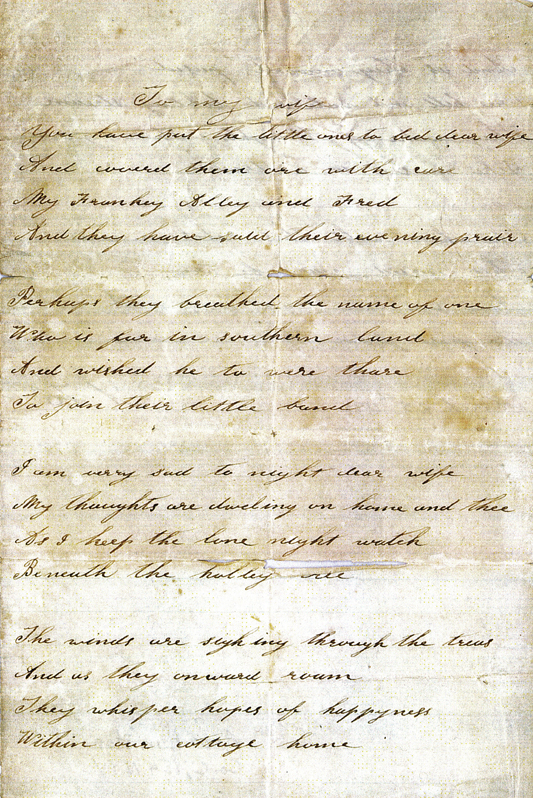 To my wife
You have put the little ones to bed dear wife
And covered them ore with care
My Frankey Alley and Fred
And they have said their evening prair
Perhaps they breathed the name of one
Who is far in southern land
And wished he to were thare
To join their little band
I am very sad to night dear wife
My thaughts are dweling on home and thee
As I keep the lone night watch
Beneath the holley tree
The winds are sighing through the trees
And as they onward roam
They whisper hopes of happyness
Within our cottage home